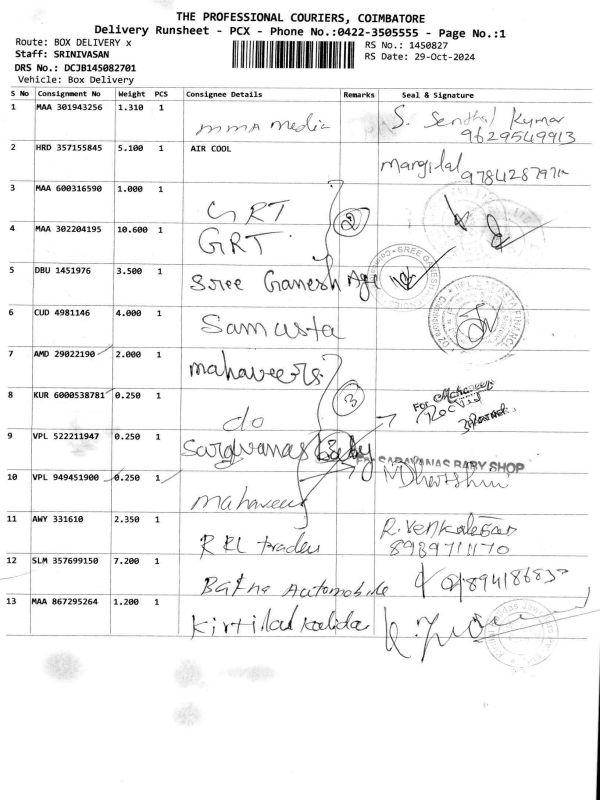 THE PROFESSIONAL COURIERS, COIMBATORE
Delivery Runsheet - PCX - Phone No.:0422-3505555 - Page No.:1
Route: BOX DELIVERY x
RS No.: 1450827
Staff: SRINIVASAN
RS Date: 29-Oct-2024
DRS No.: DCJB145082701
Vehicle: Box Delivery
S No Consignment No Weight PCS Consignee Details Remarks Seal & Signature
1 MAA 301943256 1.310 1 mmA media S. Senthil Kumar
9629549913
2 HRD 357155845 5.100 1 AIR COOL Mangilal
3 MAA 600316590 1.000 1 GRT
4 MAA 302204195 10.600 1 GRT 2
5 DBU 1451976 3.500 1 Sree Ganesh Age SREE GANESH
6 CUD 4981146 4.000 1 Samusta
7 AMD 29022190 2.000 1 mahaveers
8 KUR 6000538781 0.250 1 do 3 For Mahaveer
9 VPL 522211947 0.250 1 Saravanas Baby
SARAVANAS BABY SHOP
10 VPL 949451900 0.250 1 mahaveer
11 AWY 331610 2.350 1 RRL trader R. Venkatesan
8989711170
12 SLM 357699150 7.200 1 Automobile
13 MAA 867295264 1.200 1 Kirtilal Kalidas